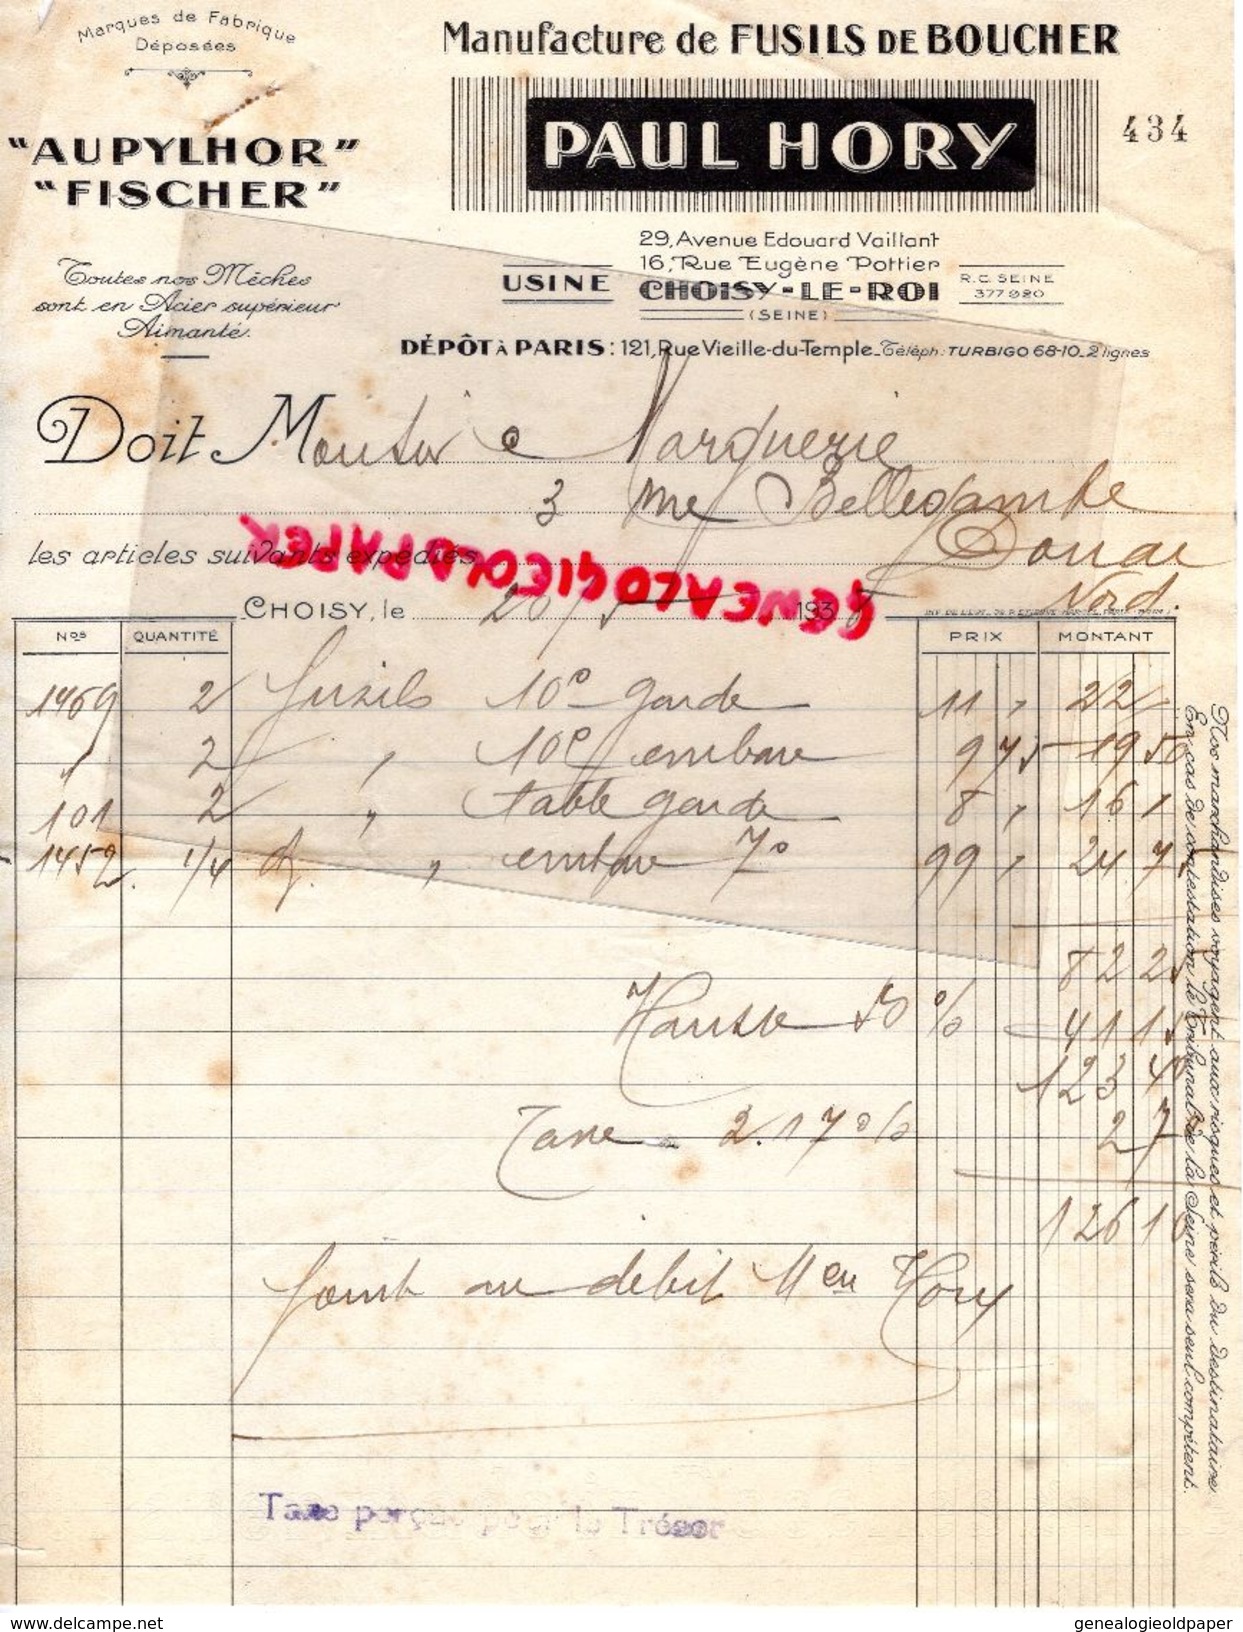 Marques de Fabrique
Déposées
"AUPYLHOR"
"FISCHER"
Toutes nos Mèches
sont en Acier supérieur
Aimanté.
Manufacture de FUSILS DE BOUCHER
PAUL HORY
434
29, Avenue Edouard Vaillant
16, Rue Eugène Pottier
USINE CHOISY-LE-ROI
(SEINE)
R.C. SEINE
377920
DÉPÔT À PARIS: 121, Rue Vieille-du-Temple_Téléph: TURBIGO 68-10_2 lignes
Doit Monsieur Marquerie
3 rue Bellegambe
les articles suivants expédiés Douai
Nord.
GENEALOGIEOLDPAPER
CHOISY, le 20/5 1938
Nos QUANTITÉ PRIX MONTANT
1469 2 fusils 10° garde 11 " 22
" 2 " 10° embase 9 75 19 50
101 2 " table garde 8 " 16 "
1452 1/4 d. " embase 7° 99 " 24 75
82 25
Hausse 50 % 41 15
123 40
Taxe 2.17 % 2 7
126 10
au debit Hory
Taxe perçue pour le Trésor
Nos marchandises voyagent aux risques et périls du destinataire
En cas de contestation le Tribunal de la Seine sera seul compétent.
www.delcampe.net
genealogieoldpaper